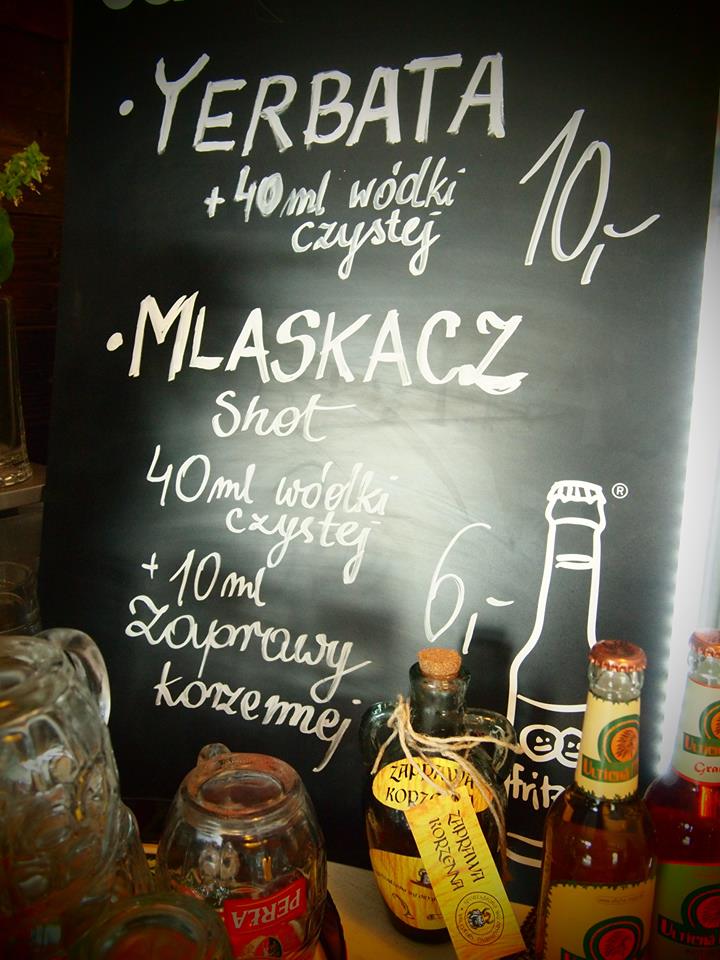 • YERBATA
+ 40ml wódki
czystej
10,-
• MLASKACZ
Shot
40ml wódki
czystej
+ 10ml
Zaprawy
korzennej
6,-
®
fritz
ZAPRAWA
ZAPRAWA
KORZENNA
PERŁA